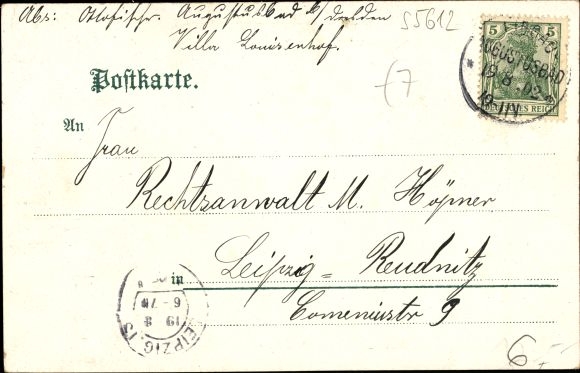 Abs: Ottofischr. Augustusbad b/Dresden
Villa Louisenhof.
55612
Postkarte.
5 5
AUGUSTUSBAD
19 8 02
DEUTSCHES REICH
An
Frau
Rechtsanwalt M. Höpner
in Leipzig=Reudnitz
Comeniusstr 9
6-7N
19 8
LEIPZIG 13
6,-